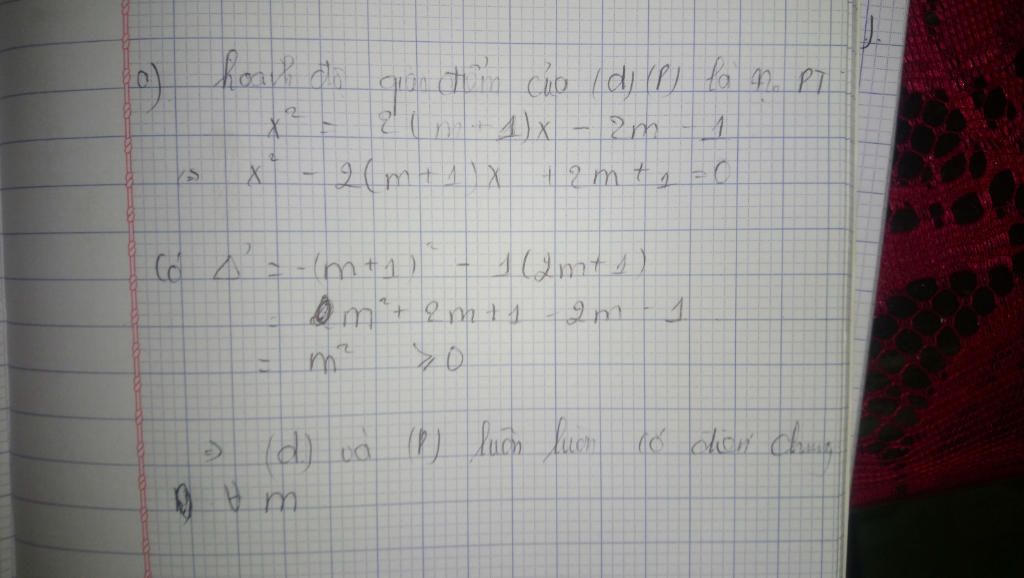 a) hoành độ giao điểm của (d) (P) là no PT
x² = 2(m+1)x - 2m - 1
=> x² - 2(m+1)x + 2m + 1 = 0
Có Δ' = -(m+1)² - 1(2m+1)
= m² + 2m + 1 - 2m - 1
= m² ⩾ 0
=> (d) và (P) luôn luôn có điểm chung
∀ m